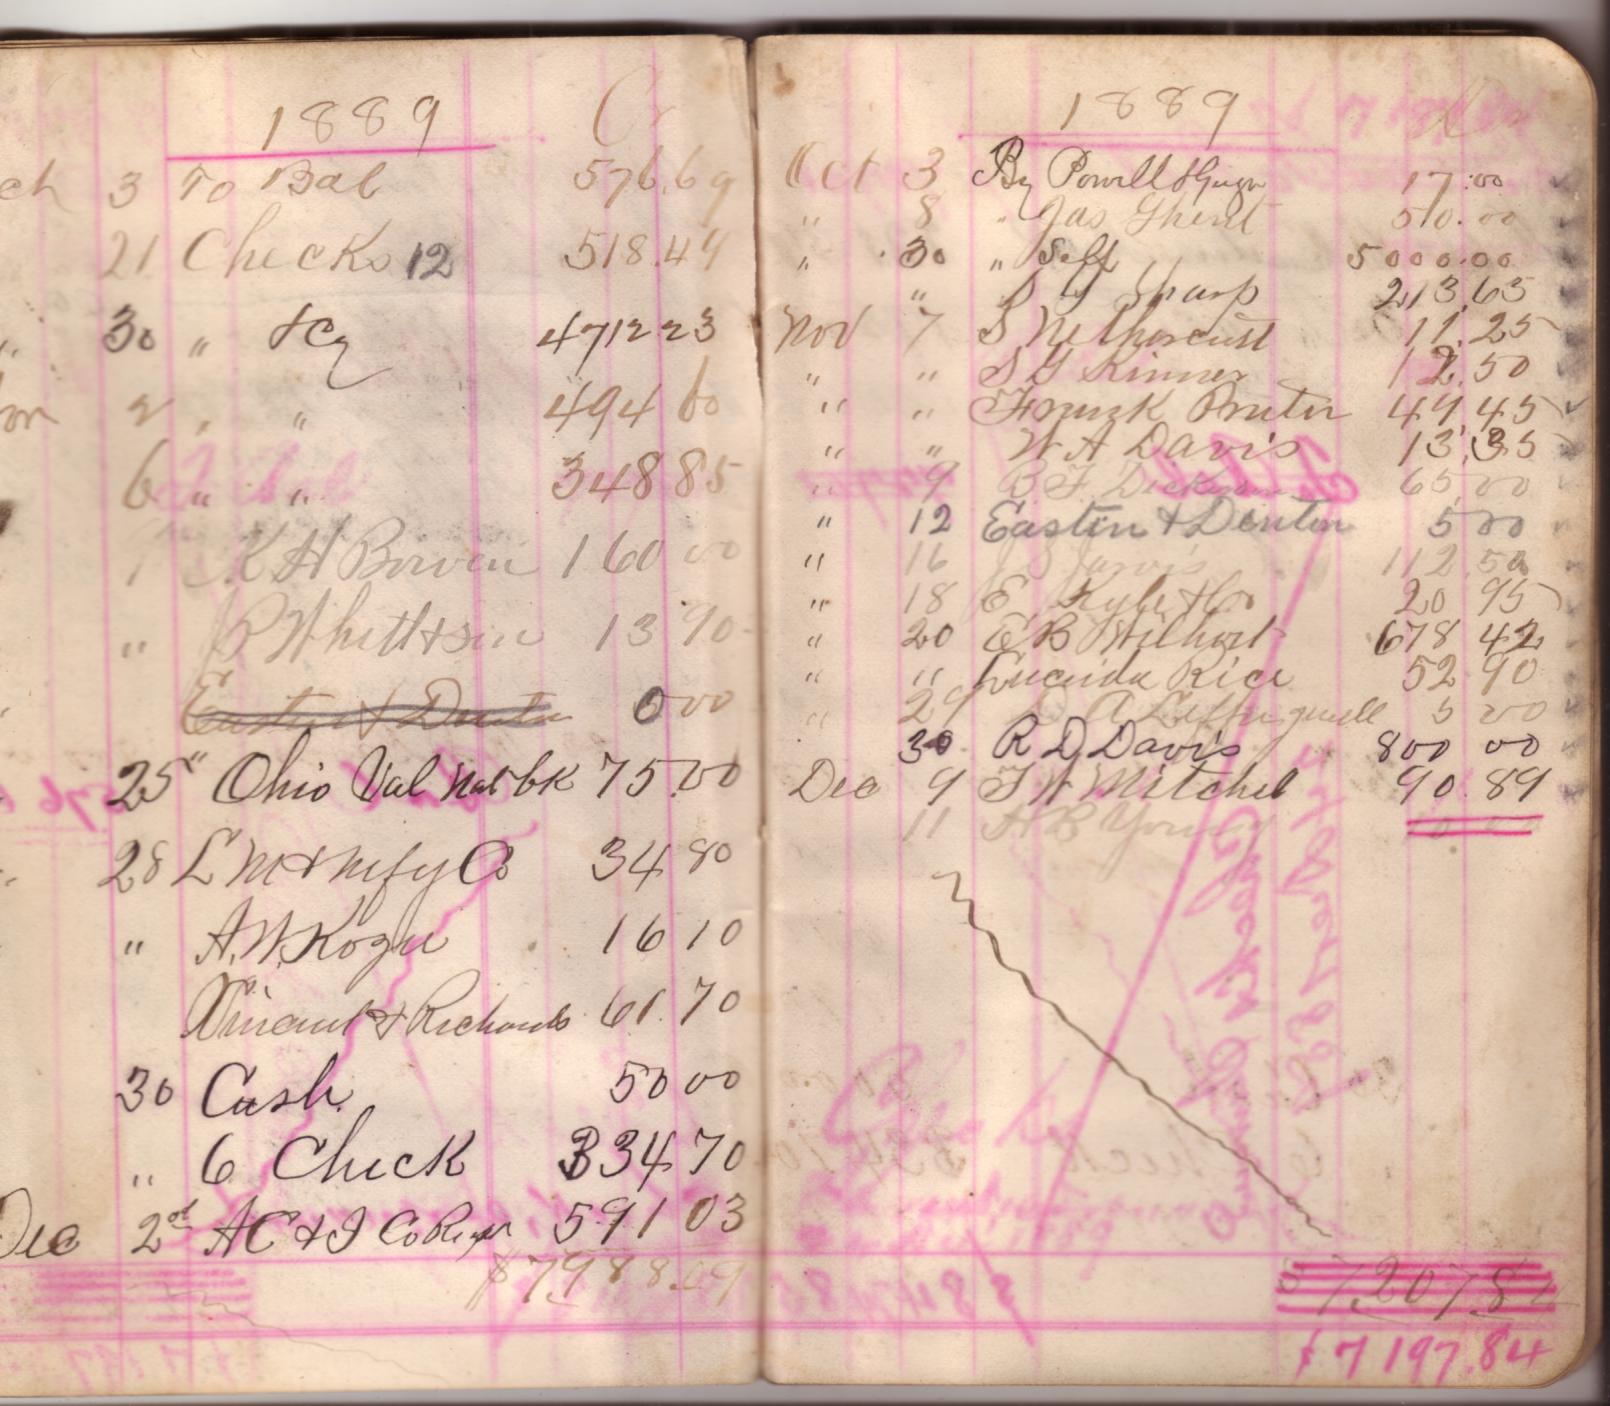 1889 Cr
ch 3 To Bal 576.69
21 Checks 12 518.44
" 30 " &Cy 4712 23
2 " " 494 60
6 " " 348 85
K H Bowen 160 00
" J P Whitt & son 13 90
" Easton & Denton 0 00
25 " Ohio Val Nat bk 75.00
28 L M & Mfg Co 34 80
" A.W. Kozee 16 10
Vincent & Richards 61.70
30 Cash 50 00
" 6 Check 334 70
Dec 2nd A C & I Co 591 03
$7988.09
1889 Dr
Oct 3 By Powell & 17.00
" 8 " Jas Ghent 50.00
" 30 " Self 5000.00
" S Sharp 213,63
Nov 7 S 11.25
" " S G Kinner 12.50
" " Frank Pruter 44 45
" " W A Davis 13.35
" 9 B F 65 00
" 12 Easton & Denton 5 00
" 16 J S Jarvis 112.50
" 18 E Kyle & Co 20 95
" 20 E B Wilhoit 678 42
" " Lucinda Rice 52 90
" 29 A Leffingwell 5 00
30 R D Davis 800 00
Dec 9 T W Mitchel 90.89
11 A B Young
7207.82
$7197.84